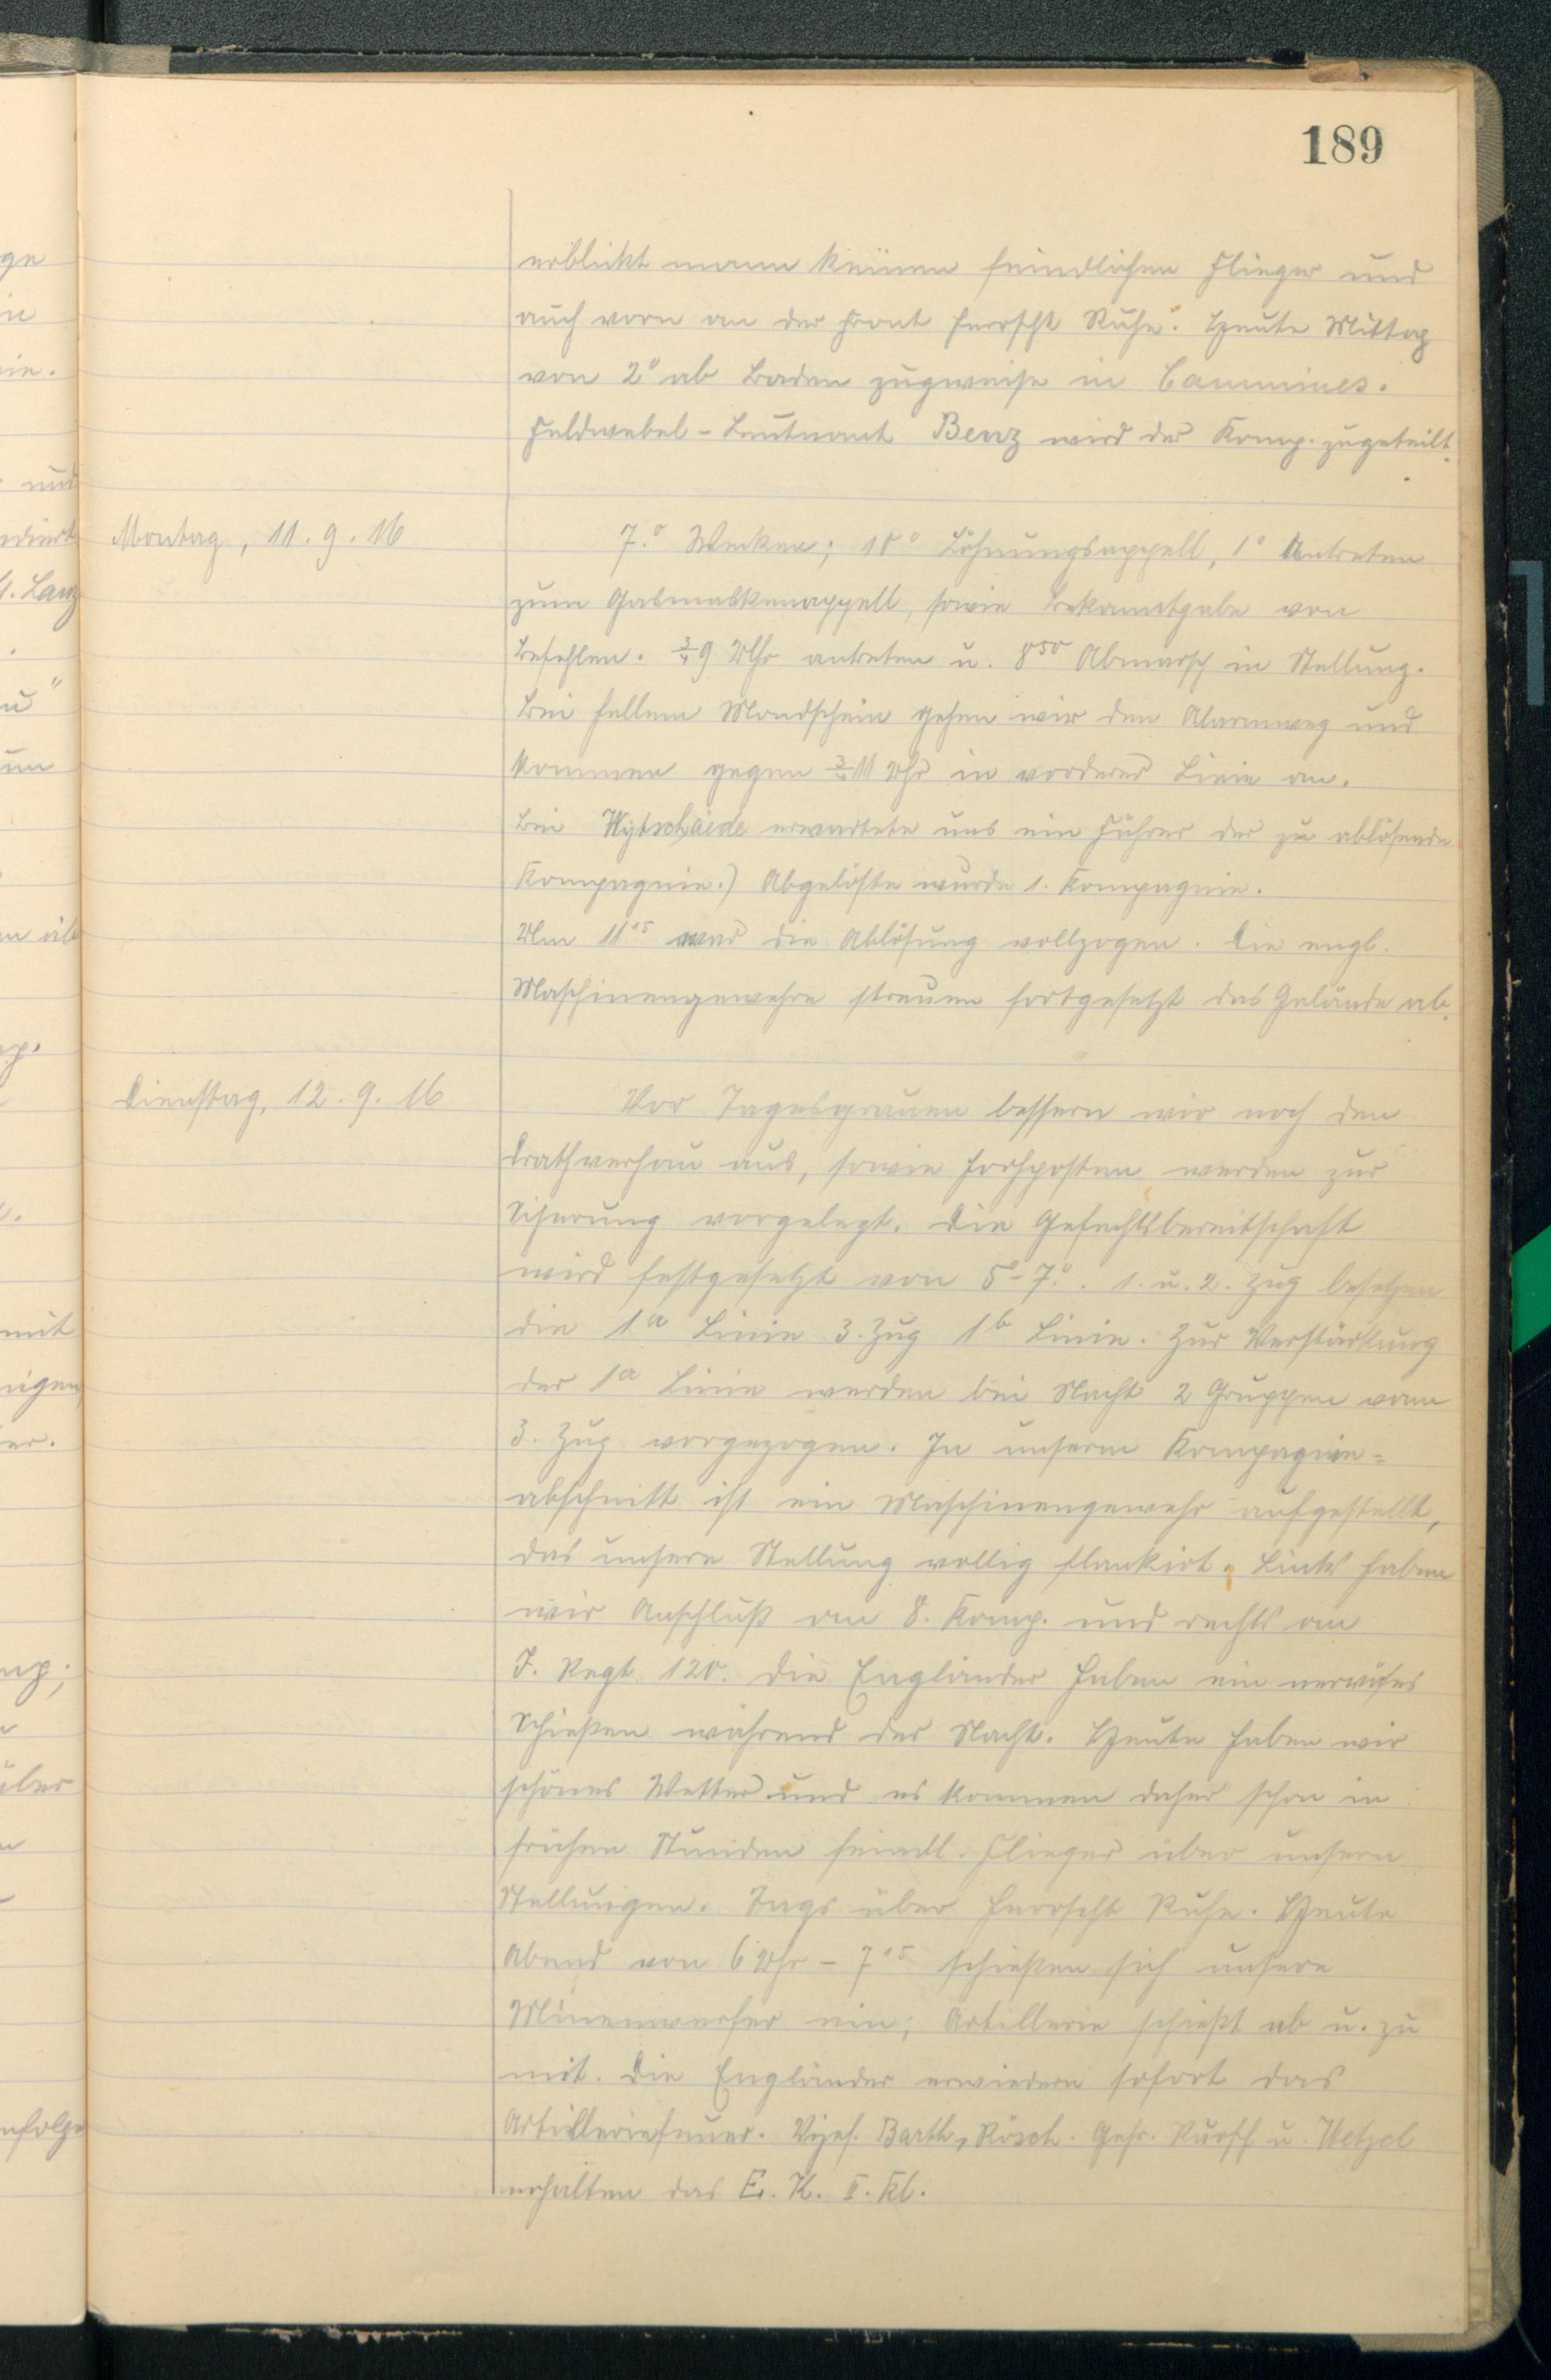 189
erblickt mann keinen feindlichen Flieger und
auch vorn an der Front herrscht Ruhe. Heute Mittag
von 2° ab Baden zugweise in Commines.
Feldwebel-Leutnant Benz wird der Komp. zugeteilt.
Montag, 11.9.16
7.° Wecken; 10° Löhnungsappell, 1° Antreten
zum Gasmaskenappell, sowie Bekanntgabe von
Befehlen. ¾9 Uhr antreten u. 8⁵⁰ Abmarsch in Stellung.
Bei hellem Mondschein gehen wir den Alarmweg und
kommen gegen ¾11 Uhr in vorderer Linie an.
Bei Wytschaede erwartete uns ein Führer der zu ablösende
Kompagnie.) Abgelöste wurde 1. Kompagnie.
Um 11¹⁵ war die Ablösung vollzogen. Die engl.
Maschinengewehre streuen fortgesetzt das Gelände ab.
Dienstag, 12.9.16
Vor Tagesgrauen bessern wir noch den
Drathverhau aus, sowie Horchposten werden zur
Sicherung vorgelegt. Die Gefechtsbereitschaft
wird festgesetzt von 5°-7.°. 1. u. 2. Zug besetzen
die 1ᵃ Linie 3. Zug 1ᵇ Linie. Zur Verstärkung
der 1ᵃ Linie werden bei Nacht 2 Gruppen vom
3. Zug vorgezogen. In unserm Kompagnie=
abschnitt ist ein Maschinengewehr aufgestellt,
das unsere Stellung vollig flankirt. Links haben
wir Anschluß an 8. Komp. und rechts an
I. Regt 120. Die Engländer haben ein nervöses
Schießen während der Nacht. Heute haben wir
schönes Wetter und es kommen daher schon in
frühen Stunden feindl. Flieger über unsern
Stellungen. Tags über herrscht Ruhe. Heute
Abend von 6 Uhr - 7¹⁵ schießen sich unsere
Minenwerfer ein; Artillerie schießt ab u. zu
mit. Die Engländer erwiedern sofort das
Artilleriefeuer. Vizef. Barth, Rösch. Gefr. u. Wetzel
erhalten das E. K. II. Kl.